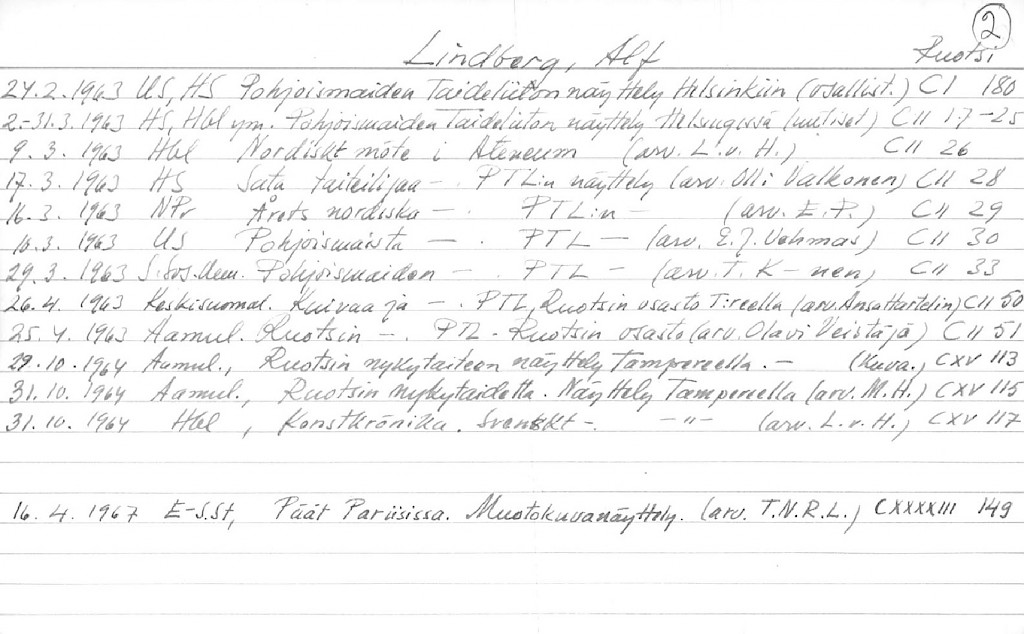 2
Lindberg, Alf Ruotsi
27.2.1963 US, HS Pohjoismaiden Taideliiton näyttely Helsinkiin (osallist.) CI 180
2.-31.3.1963 HS, Hbl ym. Pohjoismaiden Taideliiton näyttely Helsingissä (uutiset) CII 17-25
9.3.1963 Hbl Nordiskt möte i Ateneum (arv. L.v.H.) CII 26
17.3.1963 HS Sata taiteilijaa -. PTL:n näyttely (arv. Olli Valkonen) CII 28
16.3.1963 NPr Årets nordiska -. PTL:n - (arv. E.P.) CII 29
10.3.1963 US Pohjoismaista -. PTL - (arv. E.J. Vehmas) CII 30
29.3.1963 S.Sos.Dem. Pohjoismaiden -. PTL - (arv. T. K-nen) CII 33
26.4.1963 Keskisuomal. Kuivaa ja -. PTL, Ruotsin osasto T:reella (arv. Ansa Hartelin) CII 50
25.4.1963 Aamul. Ruotsin -. PTL - Ruotsin osasto (arv. Olavi Veistäjä) CII 51
29.10.1964 Aamul., Ruotsin nykytaiteen näyttely Tampereella. - (kuva.) CXV 113
31.10.1964 Aamul., Ruotsin nykytaidetta. Näyttely Tampereella (arv. M.H.) CXV 115
31.10.1964 Hbl, Konstkrönika. Svenskt -. -"- (arv. L.v.H.) CXV 117
16.4.1967 E-S.St, Päät Pariisissa. Muotokuvanäyttely. (arv. T.N.R.L.) CXXXXIII 149